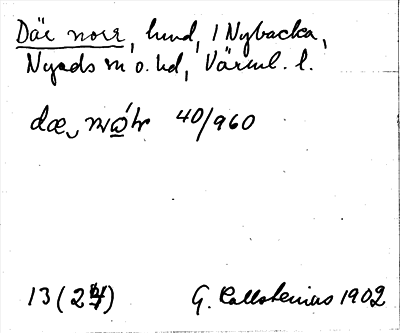 Där norr, lund, 1 Nybacka,
Nyeds sn o. hd, Värml. l.
dæ 40/960
13 (27) G. Kallstenius 1902